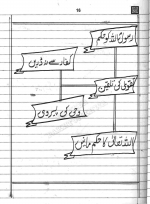 18
رسول اللہ کو حکم
کفار سے نہ ڈریں
تقویٰ کی تلقین
وحی کی پیروی
اللہ تعالیٰ کا حکم مانیں